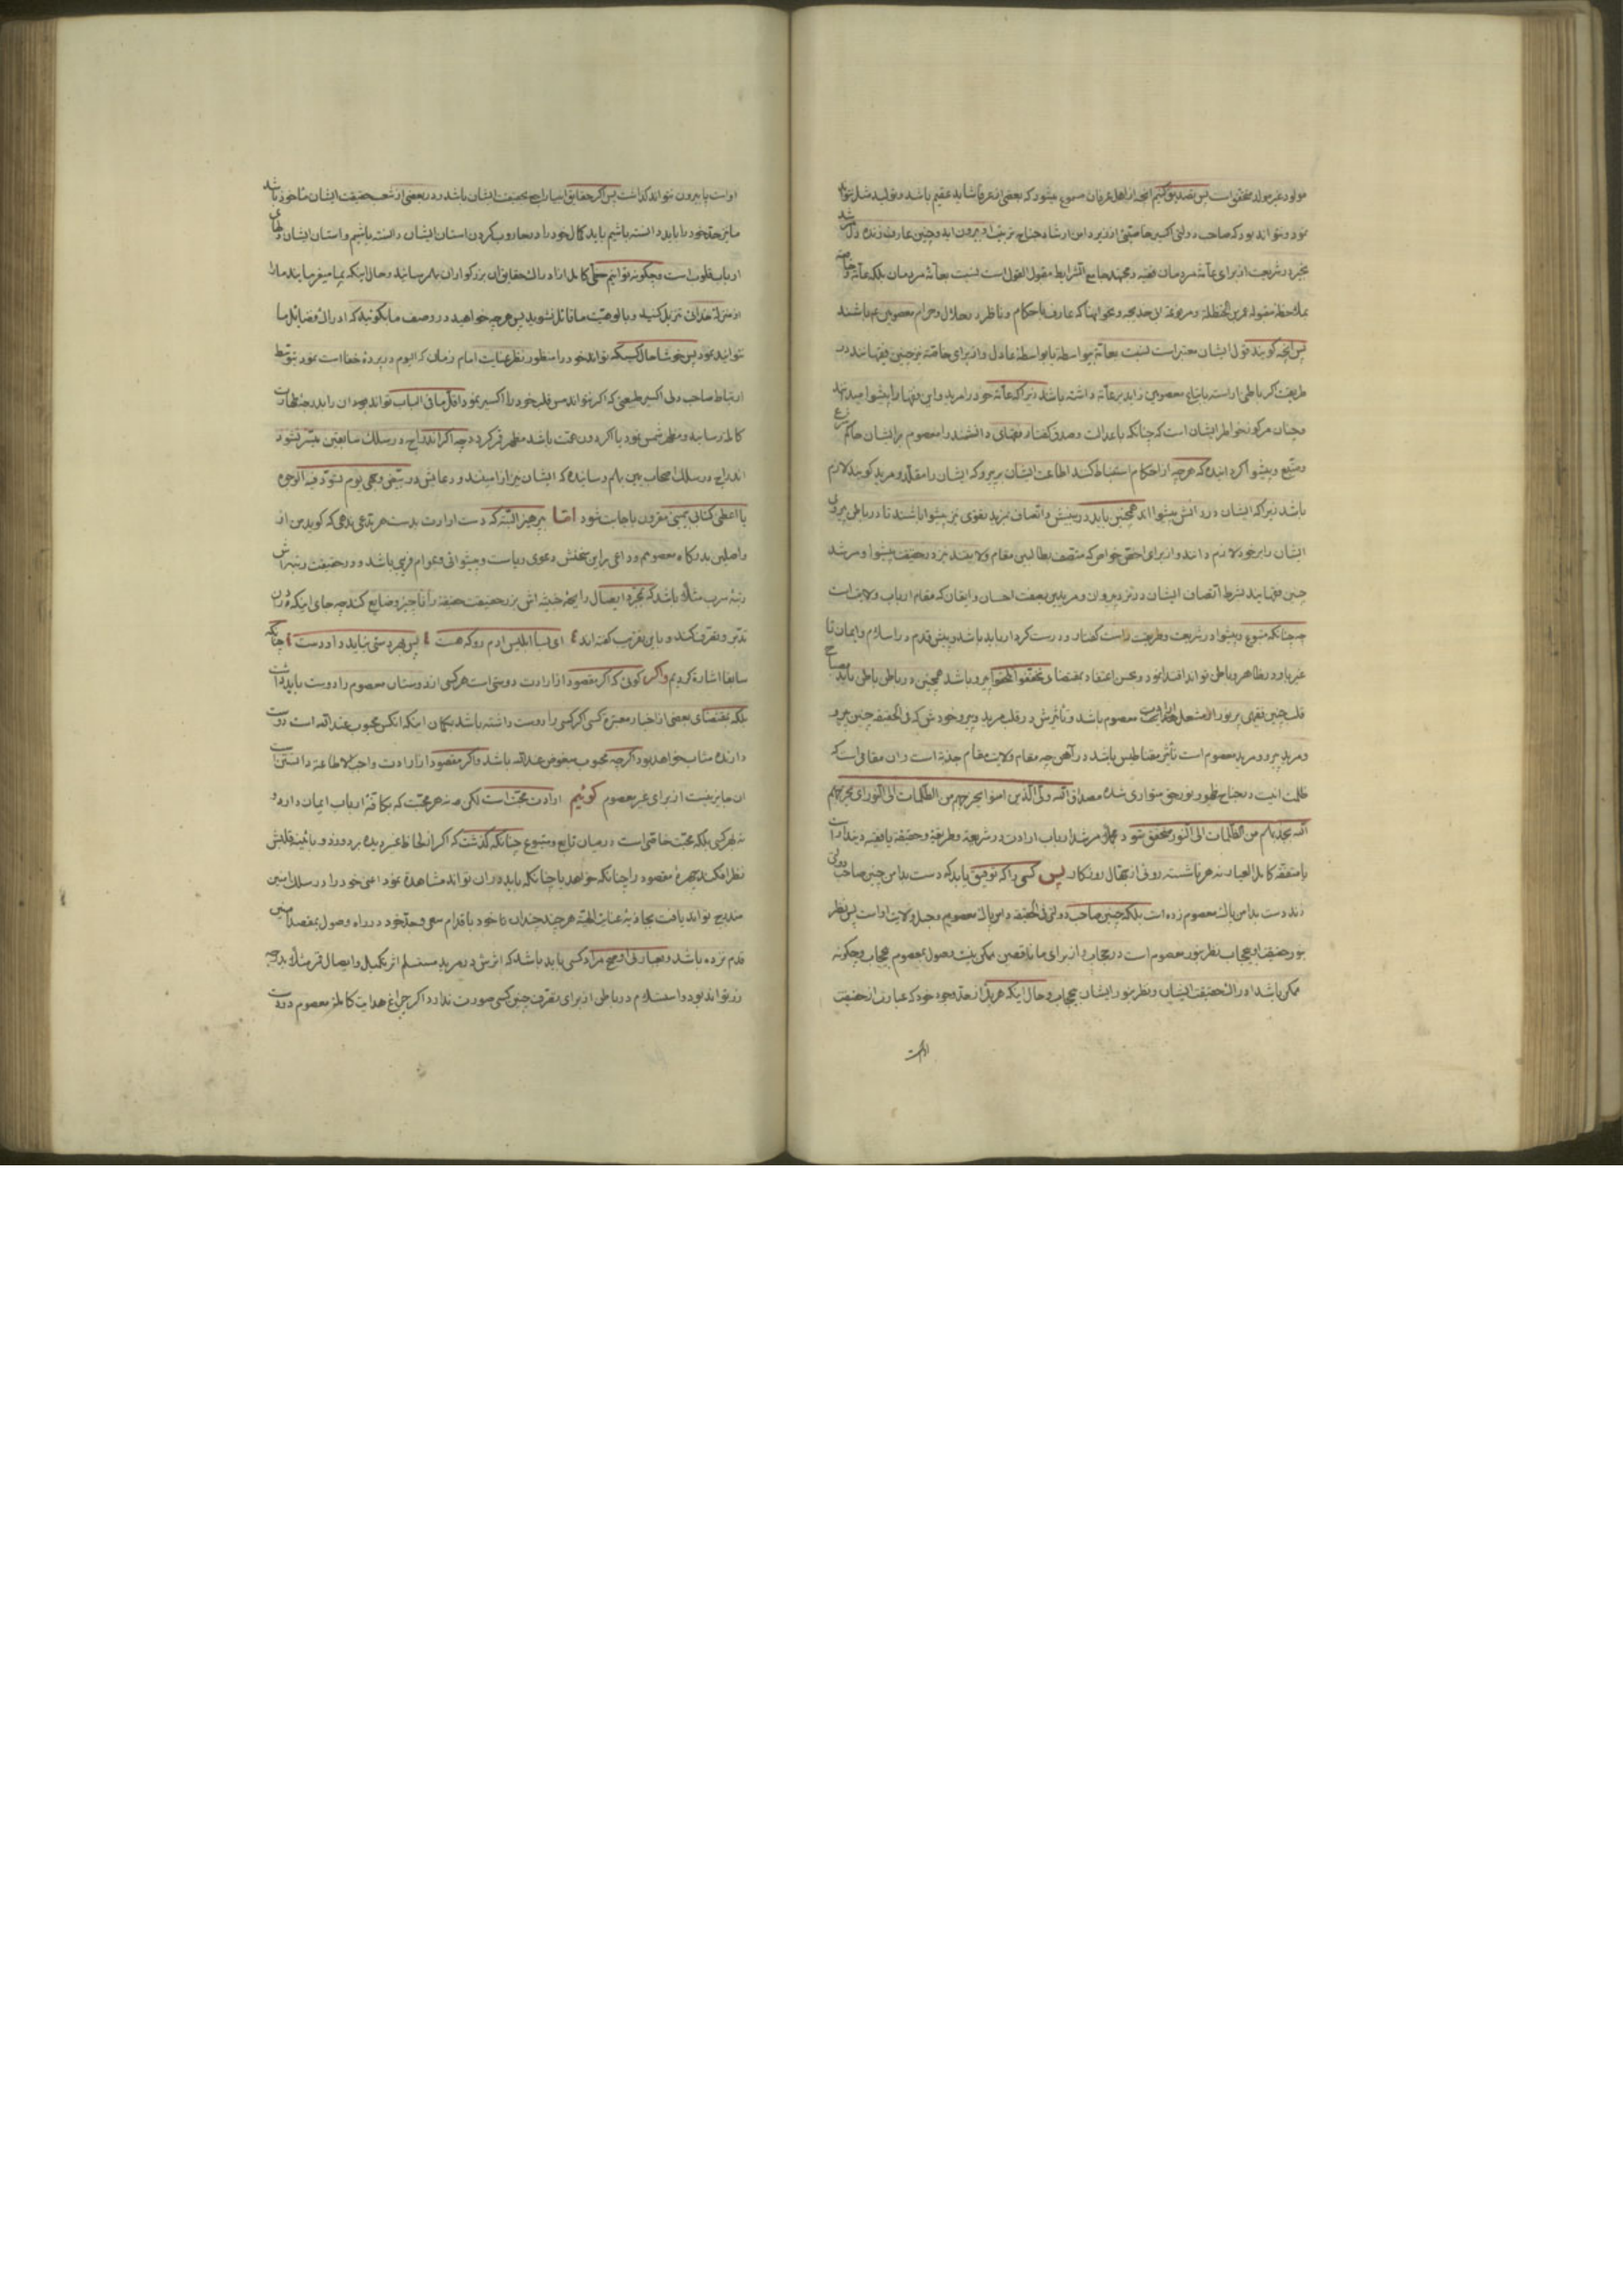 مولود غیر مولد محقق است پس تصدیق کنیم آنچه از اهل عرفان مسموع میشود که بعضی از عرفا شاید عقیم باشد و تولید مثل نتواند
نمود و نتواند بود که صاحب دولتی اکسیر خاصیتی از زیر دامن ارشاد جناح تربیت او بیرون اید و چنین عارف زنده دل
بخبره در شریعت از برای عامّه مردمان فقیه و مجتهد جامع الشرایط مقبول القول است نسبت بعامّه مردمان بلکه عامّه و خاصه
بملاحظه مقبوله عمر بن الحنظلة و مرفوعه ابی خدیجه و نحو اینها که عارف باحکام و ناظر در حلال و حرام معصومین ع باشند
پس آنچه گویند قول ایشان معتبر است نسبت بعامّه بیواسطه یا بواسطه عادل و از برای خاصّه نیز چنین فقها باید در
طریقت اگر باطن اراسته باتباع معصومین زاید بر عامّه داشته باشد زیرا که عامّه خود را مرید و این فقها را پیشوا میدانند
و چنان مرکوز خواطر ایشان است که چنانکه با عدالت و صدق گفتار فقهای دانشمند را معصوم بر ایشان حاکم شرع
و متبع و پیشوا گردانیده که هرچه از احکام استنباط کنند اطاعت ایشان بر پیرو که ایشان را مقلد و مرید گویند لازم
باشد زیرا که ایشان در دانش پیشوا اند همچنین باید در بینش و اتصاف بمزید تقوی نیز پیشوا باشند تا در باطن پیروی
ایشان را بر خود لازم دانند و از برای اخص خواص که متصف بطالبین مقام ولایتند نیز در حقیقت پیشوا و مرشد
چنین فقها یند بشرط اتصاف ایشان در نزد پیروان و مریدین بصفت احسان و ایقان که مقام ارباب ولایت است
چه چنانکه متبوع و پیشوا در شریعت و طریقت راست گفتار و درست کردار باید باشد و پیش قدم در اسلام و ایمان تا
غیر باو در ظاهر و باطن تواند اقتدا نمود و بحسن اعتقاد بمقتضای پیرو باشد همچنین در باطن باطن باید مصباح
قلب چنین فقیهی بر نور الامشعل هدایت معصوم باشد و تأثیرش در قلب مرید و پیرو خودش که فی الحقیقه چنین پیرو
و مرید پیرو و مرید معصوم است تأثیر مقناطیس باشد در آهن چه مقام ولایت مقام جذبه است و ان مقامی است که
ظلمت انیت در جناح ظهور نور حق متواری شده مصداق الله ولی الذین امنوا یخرجهم من الظلمات الی النور ای یخرجهم
الله بجذبه لهم من الظلمات الی النور متحقق شود و مرشد ارباب ارادت در شریعة و طریقة و حقیقة یا فقیه دیندار است
یا متفقه کامل العیار نه هر ناشسته روئی از جهال روزگار پس کسی را که توفیق یابد که دست بدامن چنین صاحب دولتی
زند دست بدامن پاک معصوم زده است بلکه چنین صاحب دولتی فی الحقیقه دامن پاک معصوم و حبل ولایت او است پس نظر
بنور حقیقت او بیحجاب نظر بنور معصوم است در حجاب و از برای ما ناقصین ممکن نیست وصول بمعصوم بیحجاب و چگونه
ممکن باشد ادراک حقیقت ایشان و نظر بنور ایشان بیحجاب و حال اینکه هر یک از حد وجود خود که عبارت از حقیقت
او است
او است پا بیرون نتواند گذاشت پس اگر حقایق باشد و در بعضی از شعب حقیقت ایشان ماخوذ باشد
ما نیز حد خود را باید دانسته باشیم باید کمال خود را در جاروب کردن استان ایشان دانسته باشیم و استان ایشان دلهای
ارباب قلوب است و چگونه توانیم کامل از ادراک حقایق ان بزرگواران بهم رسانید و حال اینکه بما میفرمایند ما را
از منزلت خدائی تنزیل کنید و بالوهیت ما قائل نشوید پس هر چه خواهید در وصف ما بگوئید که ادراک فضائل ما
نتوانید نمود پس خوشا حال کسیکه تواند خود را منظور نظر عنایت امام زمان که الیوم در پرده خفا است نمود بتوسط
ارتباط صاحب دلی اکسیر طبیعتی که اگر نتواند مس قلب خود را اکسیر نمود اقل ما فی الباب تواند بود ان را بدرجه طهارت
کامله رسانید و مظهر شمس نمود یا اگر دون همت باشد مظهر قمر گردد چه اگر اندراج در سلک سابقین میسر نشود
اندراج در سلک اصحاب یمین بهم رسانیده که ایشان نیز از امینند و دعایش در بیّض وجهی یوم تسوّد فیه الوجوه
یا اعطنی کتابی بیمینی مقرون باجابت شود امّا بپرهیز البته که دست ارادت بدست هر مدعی ندهی که گوید من از
واصلین بدرگاه معصومم و داعی بر این سخنش دعوی ریاست و پیشوائی و عوام فریبی باشد و در حقیقت رتبه اش
رتبهٔ سرب مثلا باشد که بمجرد ایصال رایحه خبیثه اش بزر حقیقت حقیقة را ناچیز و ضایع کند چه جای اینکه در ان
تدبر و تصرف کند و باین تقریب گفته اند ع ای بسا ابلیس ادم رو که هست ع پس بهر دستی نباید داد دست ع چنانکه
سابقا اشاره کردیم و اگر گوئی که اگر مقصود از ارادت دوستی است هر کسی از دوستان معصوم را دوست باید داشت
بلکه بمقتضای بعضی از اخبار معتبره کسی اگر کسی را دوست داشته باشد بگمان اینکه انکس محبوب عند الله است دوست
دارنده مثاب خواهد بود اگرچه محبوب مبغوض عند الله باشد و اگر مقصود از ارادت واجب الاطاعة دانستن است
ان جایز نیست از برای غیر معصوم گوئیم ارادت محبت است لکن نه هر محبت که بکافهٔ ارباب ایمان دارد و
نه بهر کسی بلکه محبت خاصی است در میان تابع و متبوع چنانکه گذشت که اگر از لحاظ غیر دیده بردوزد و بائینه قلبش
نظر افکند چهرهٔ مقصود را چنانکه خواهد یا چنانکه باید در ان تواند مشاهده نمود اعنی خود را در سلک امنین
مندرج تواند یافت بجاذبهٔ عنایت الهیه هر چند چندان تا خود باقدام سعی و جد خود در راه وصول بمقصد امنی
قدم نزده باشد و بعبارتی اوضح مراد کسی باید باشد که اثرش در مرید مستسلم اثر تکمیل و ایصال قمر مثلا بدرجه
زر تواند بود و استسلام در باطن از برای تصرف چنین کسی صورت ندارد اگر چراغ هدایت کامله معصوم در دست